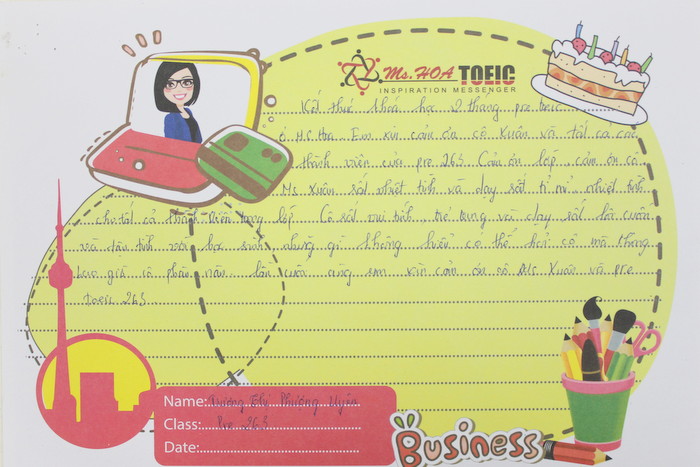 Ms. HOA TOEIC
INSPIRATION MESSENGER
Kết thúc khoá học 2 tháng pre
ở M.S Hoa. Em xin cảm ơn cô Xuân và tất cả các
thành viên của pre 263. Cảm ơn lớp, cảm ơn cô
Ms Xuân rất nhiệt tình và dạy rất tỉ mỉ, nhiệt tình
cho tất cả thành viên trong lớp. Cô rất vui tính, trẻ trung và dạy rất lôi cuốn
và tận tình với học sinh những gì không hiểu có thể hỏi cô mà không
bao giờ cô phàn nàn. lần cuối cùng em xin cảm ơn cô Ms. Xuân và pre
Toeic 263
Name: Phương Uyên
Class: Pre 263
Date:
Business